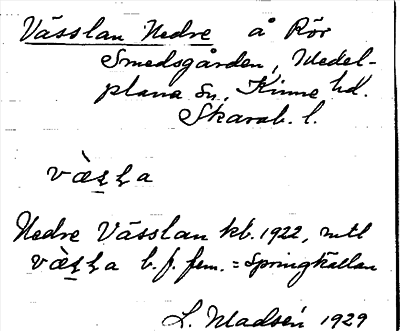 Vässlan Nedre å Rör
Smedsgården, Medel-
plana sn, Kinne hd.
Skarab. l.
Nedre Vässlan kb. 1922, 
b. f. fem. = Springkällan
L. Madsén 1929